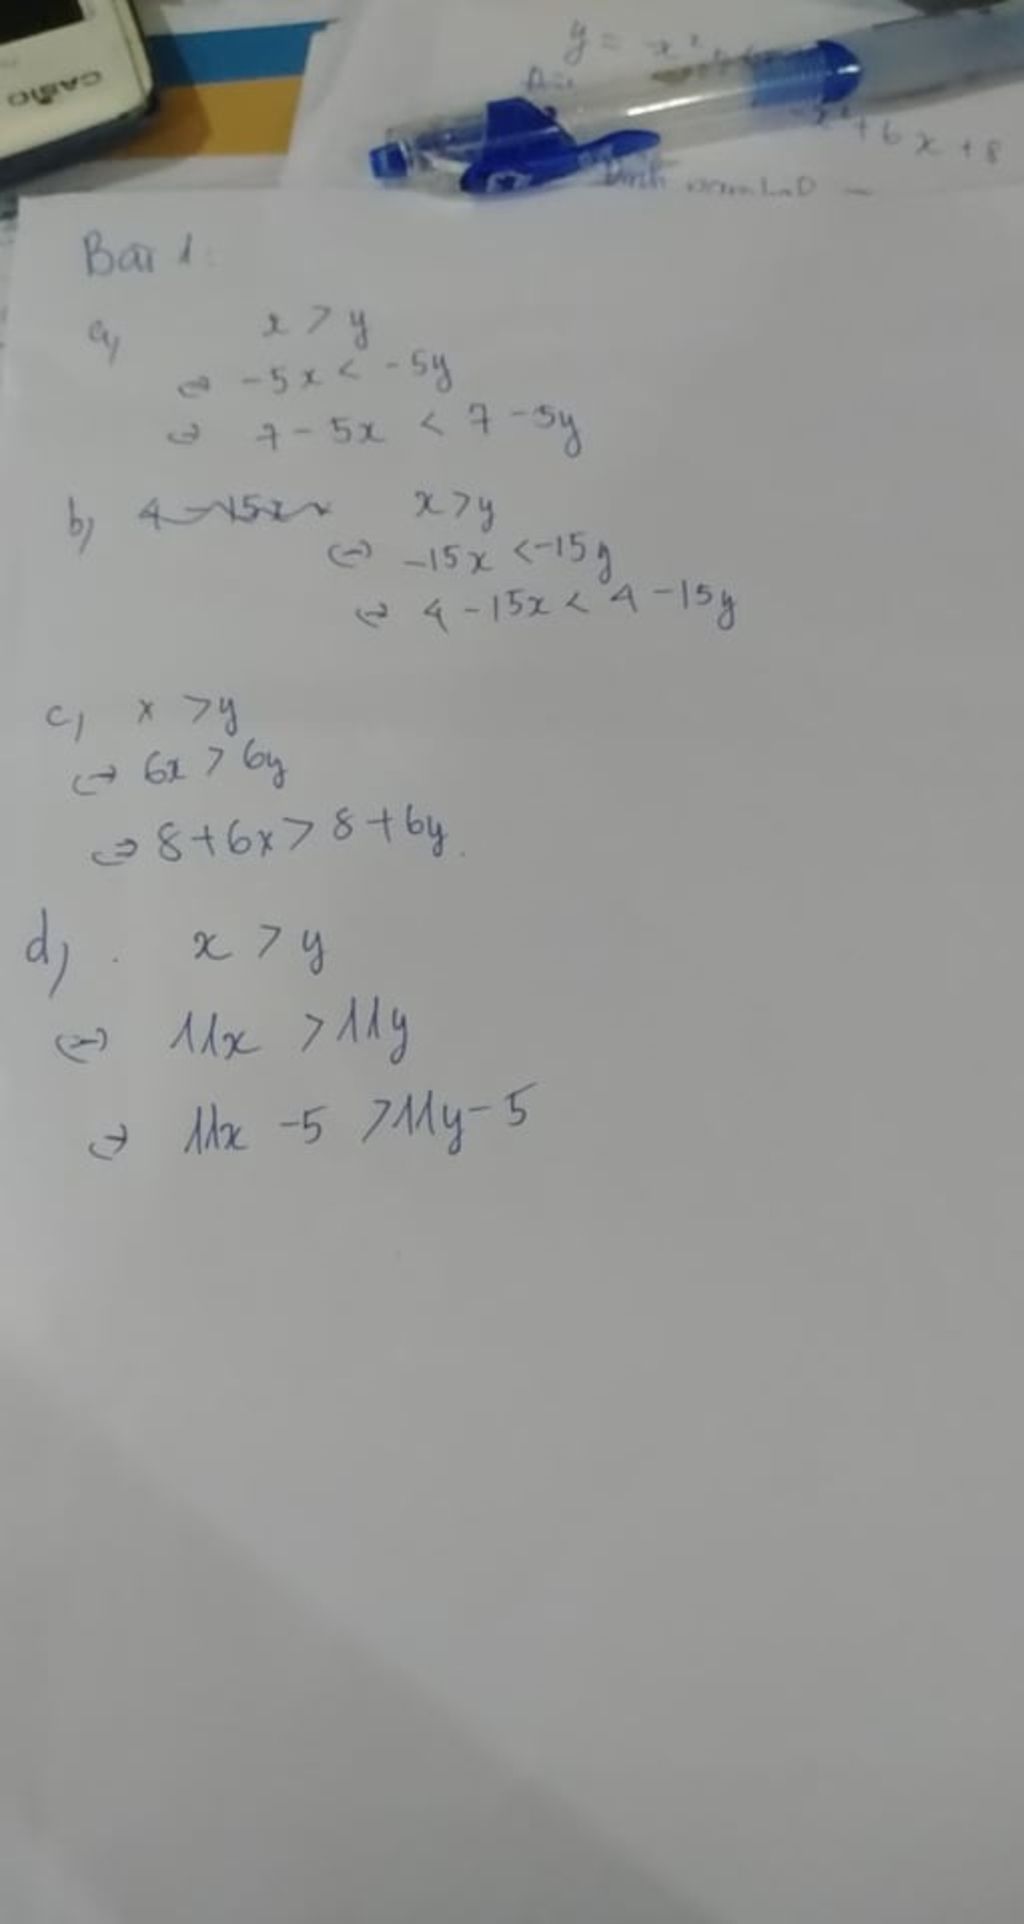 CASIO
y = x²
x² + 6x + 8
Bài 1:
a, x > y
⇔ -5x < -5y
⇔ 7 - 5x < 7 - 5y
b, x > y
⇔ -15x < -15y
⇔ 4 - 15x < 4 - 15y
c, x > y
⇔ 6x > 6y
⇔ 8 + 6x > 8 + 6y.
d, x > y
⇔ 11x > 11y
⇔ 11x - 5 > 11y - 5